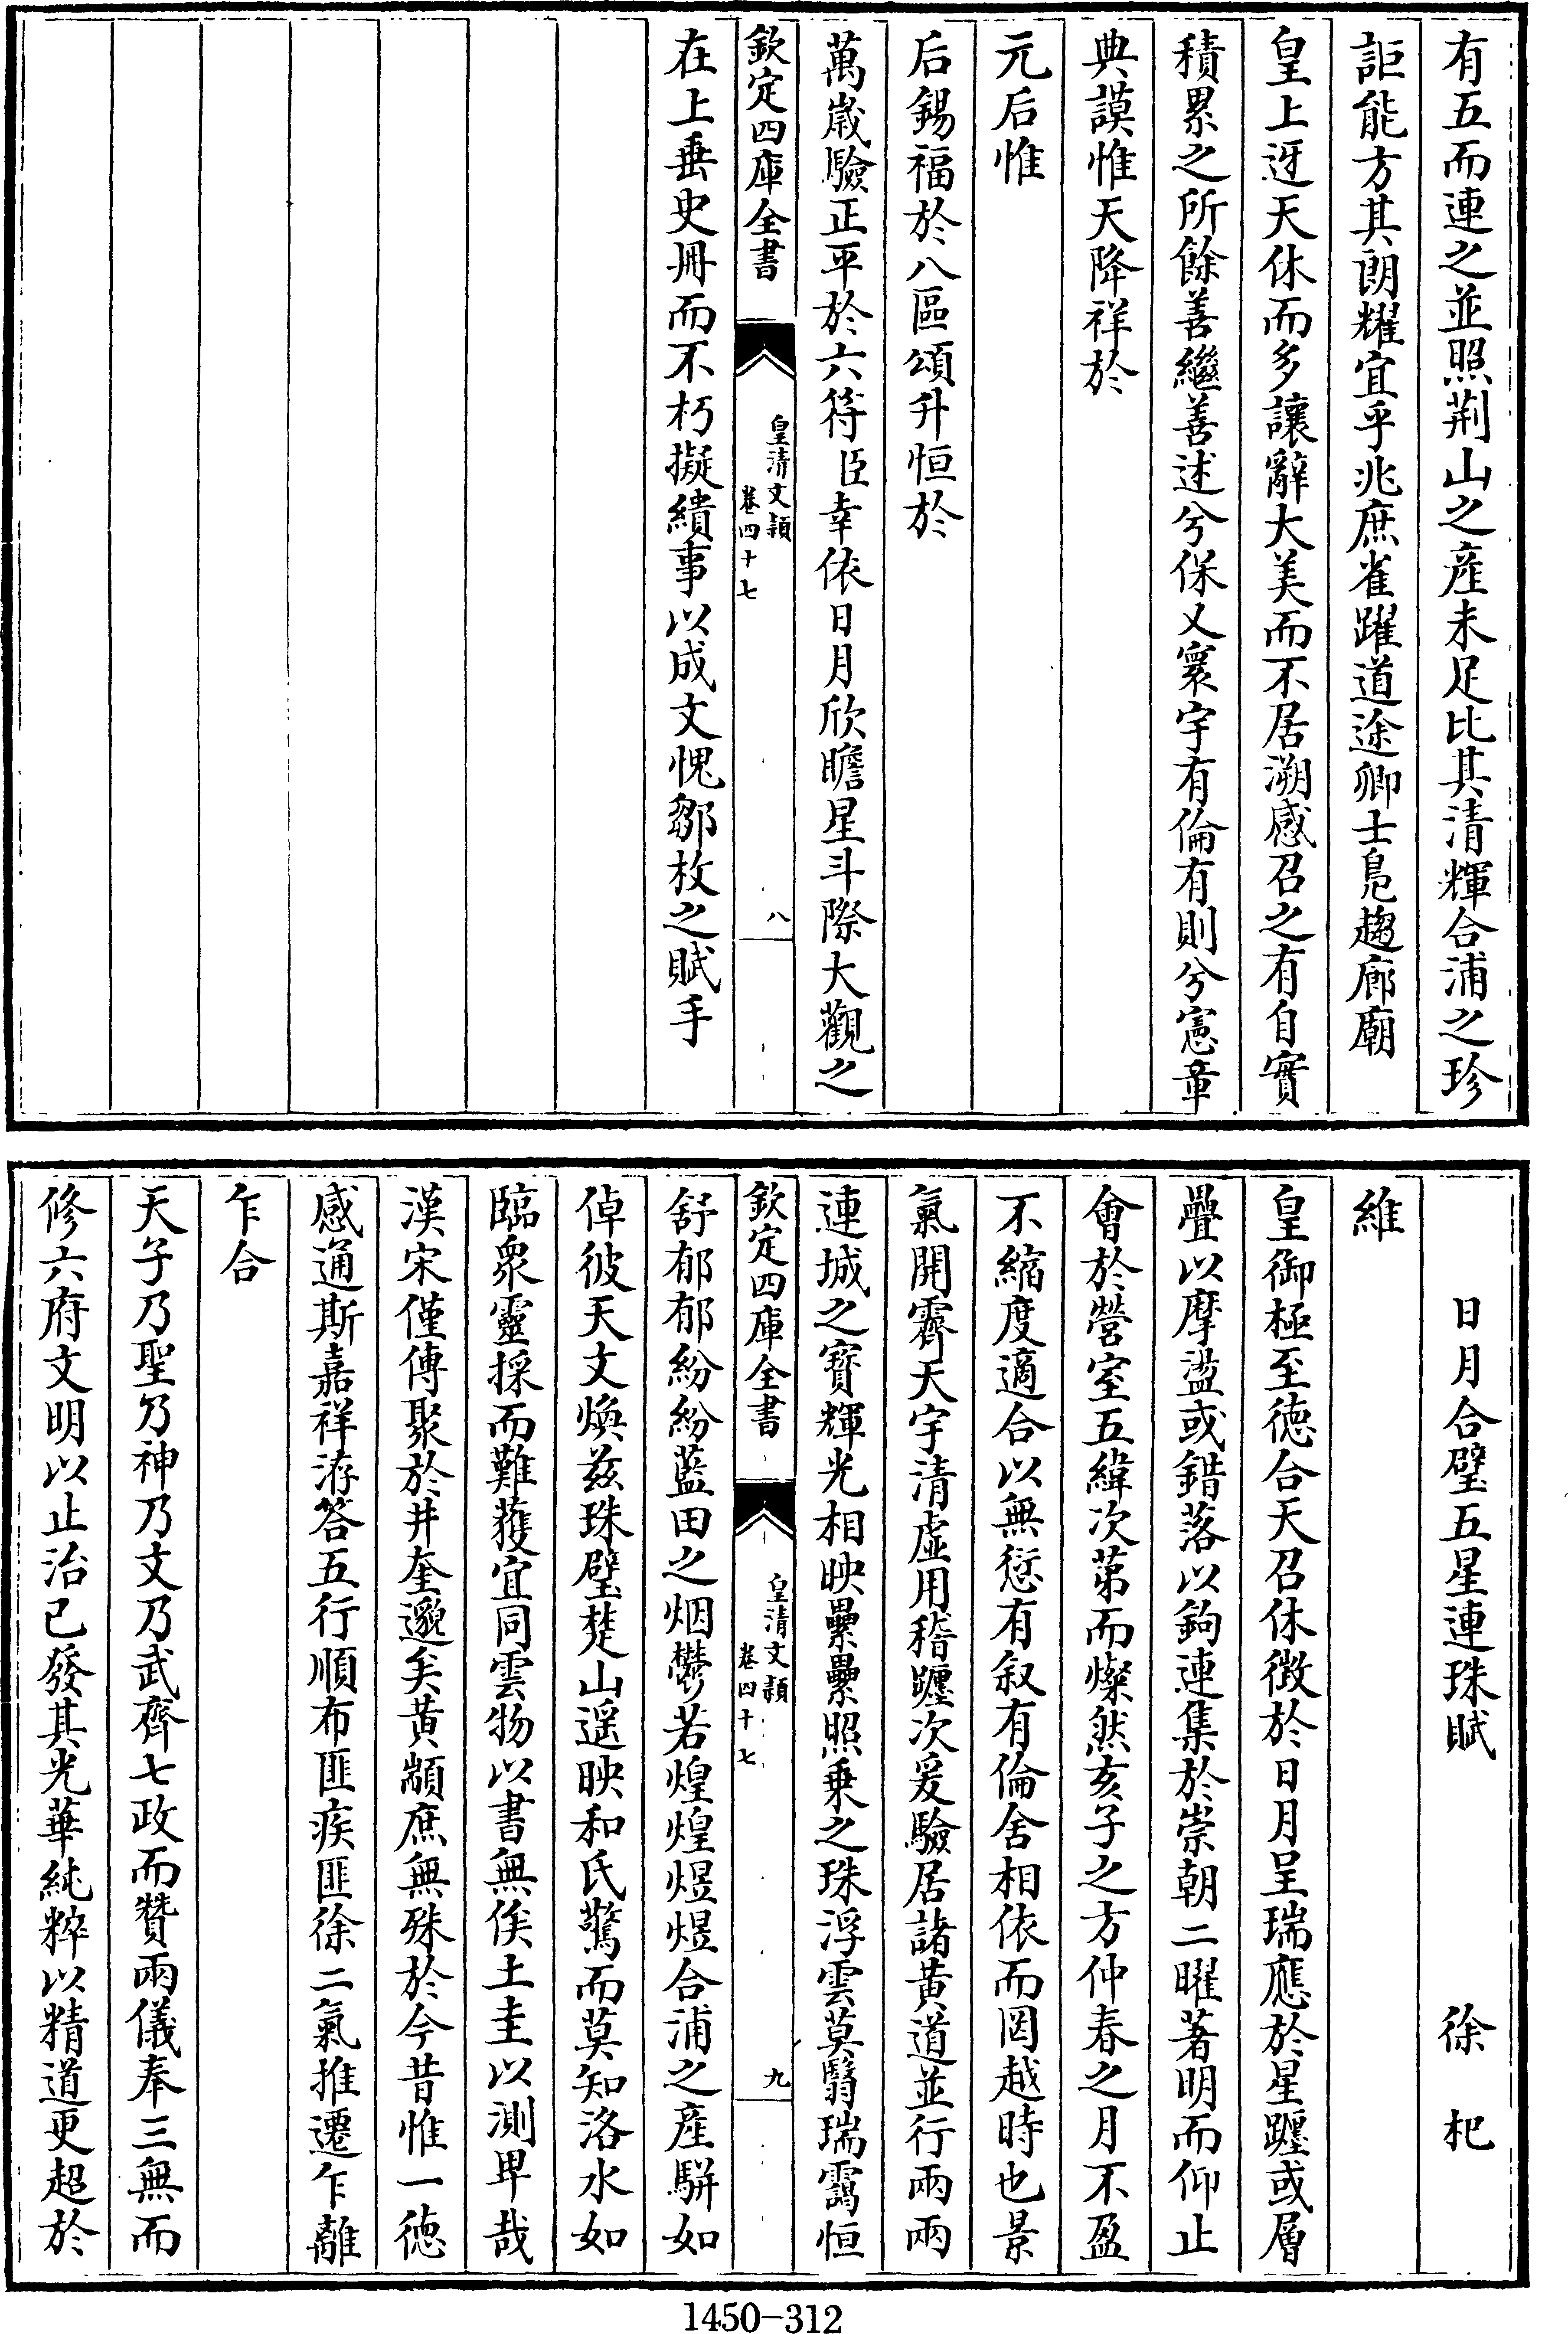 有五而連之並照荆山之產未足比其清輝合浦之珍
詎能方其朗耀宜乎兆庶雀躍道途卿士鳬趨廊廟
皇上迓天休而多讓辭大美而不居溯感召之有自實
積累之所餘善繼善述兮保乂寰宇有倫有則兮憲章
典謨惟天降祥於
元后惟
后錫福於八區頌升恒於
萬歲驗正平於六符臣幸依日月欣瞻星斗際大觀之
欽定四庫全書
皇清文穎
卷四十七
八
在上垂史冊而不朽擬繢事以成文愧鄒枚之賦手
日月合璧五星連珠賦 徐杞
維
皇御極至徳合天召休徴於日月呈瑞應於星躔或層
疊以摩盪或錯落以鉤連集於崇朝二曜著明而仰止
會於營室五緯次第而燦然亥子之方仲春之月不盈
不縮度適合以無愆有叙有倫舍相依而罔越時也景
氣開霽天宇清虛用稽躔次爰驗居諸黄道並行兩兩
連城之寳輝光相映纍纍照乗之珠浮雲莫翳瑞靄恒
欽定四庫全書
皇清文穎
卷四十七
九
舒郁郁紛紛藍田之烟鬱若煌煌煜煜合浦之產駢如
倬彼天文煥兹珠璧楚山遥映和氏驚而莫知洛水如
臨衆靈採而難獲宜同雲物以書無俟土圭以測卑哉
漢宋僅傳聚於井奎邈矣黄顓庶無殊於今昔惟一徳
感通斯嘉祥洊答五行順布匪疾匪徐二氣推遷乍離
乍合
天子乃聖乃神乃文乃武齊七政而贊兩儀奉三無而
修六府文明以止治已發其光華純粹以精道更超於
1450-312